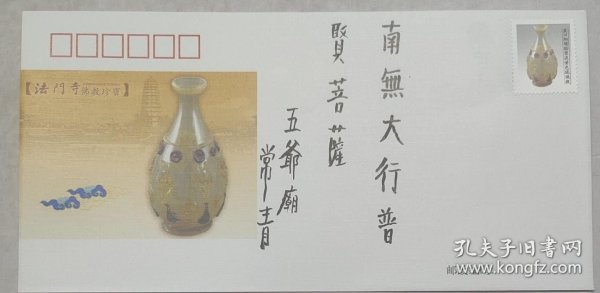 【法門寺佛教珍寶】
南無大行普
賢菩薩
五爺廟
常青
孔夫子旧书网
www.kongfz.com